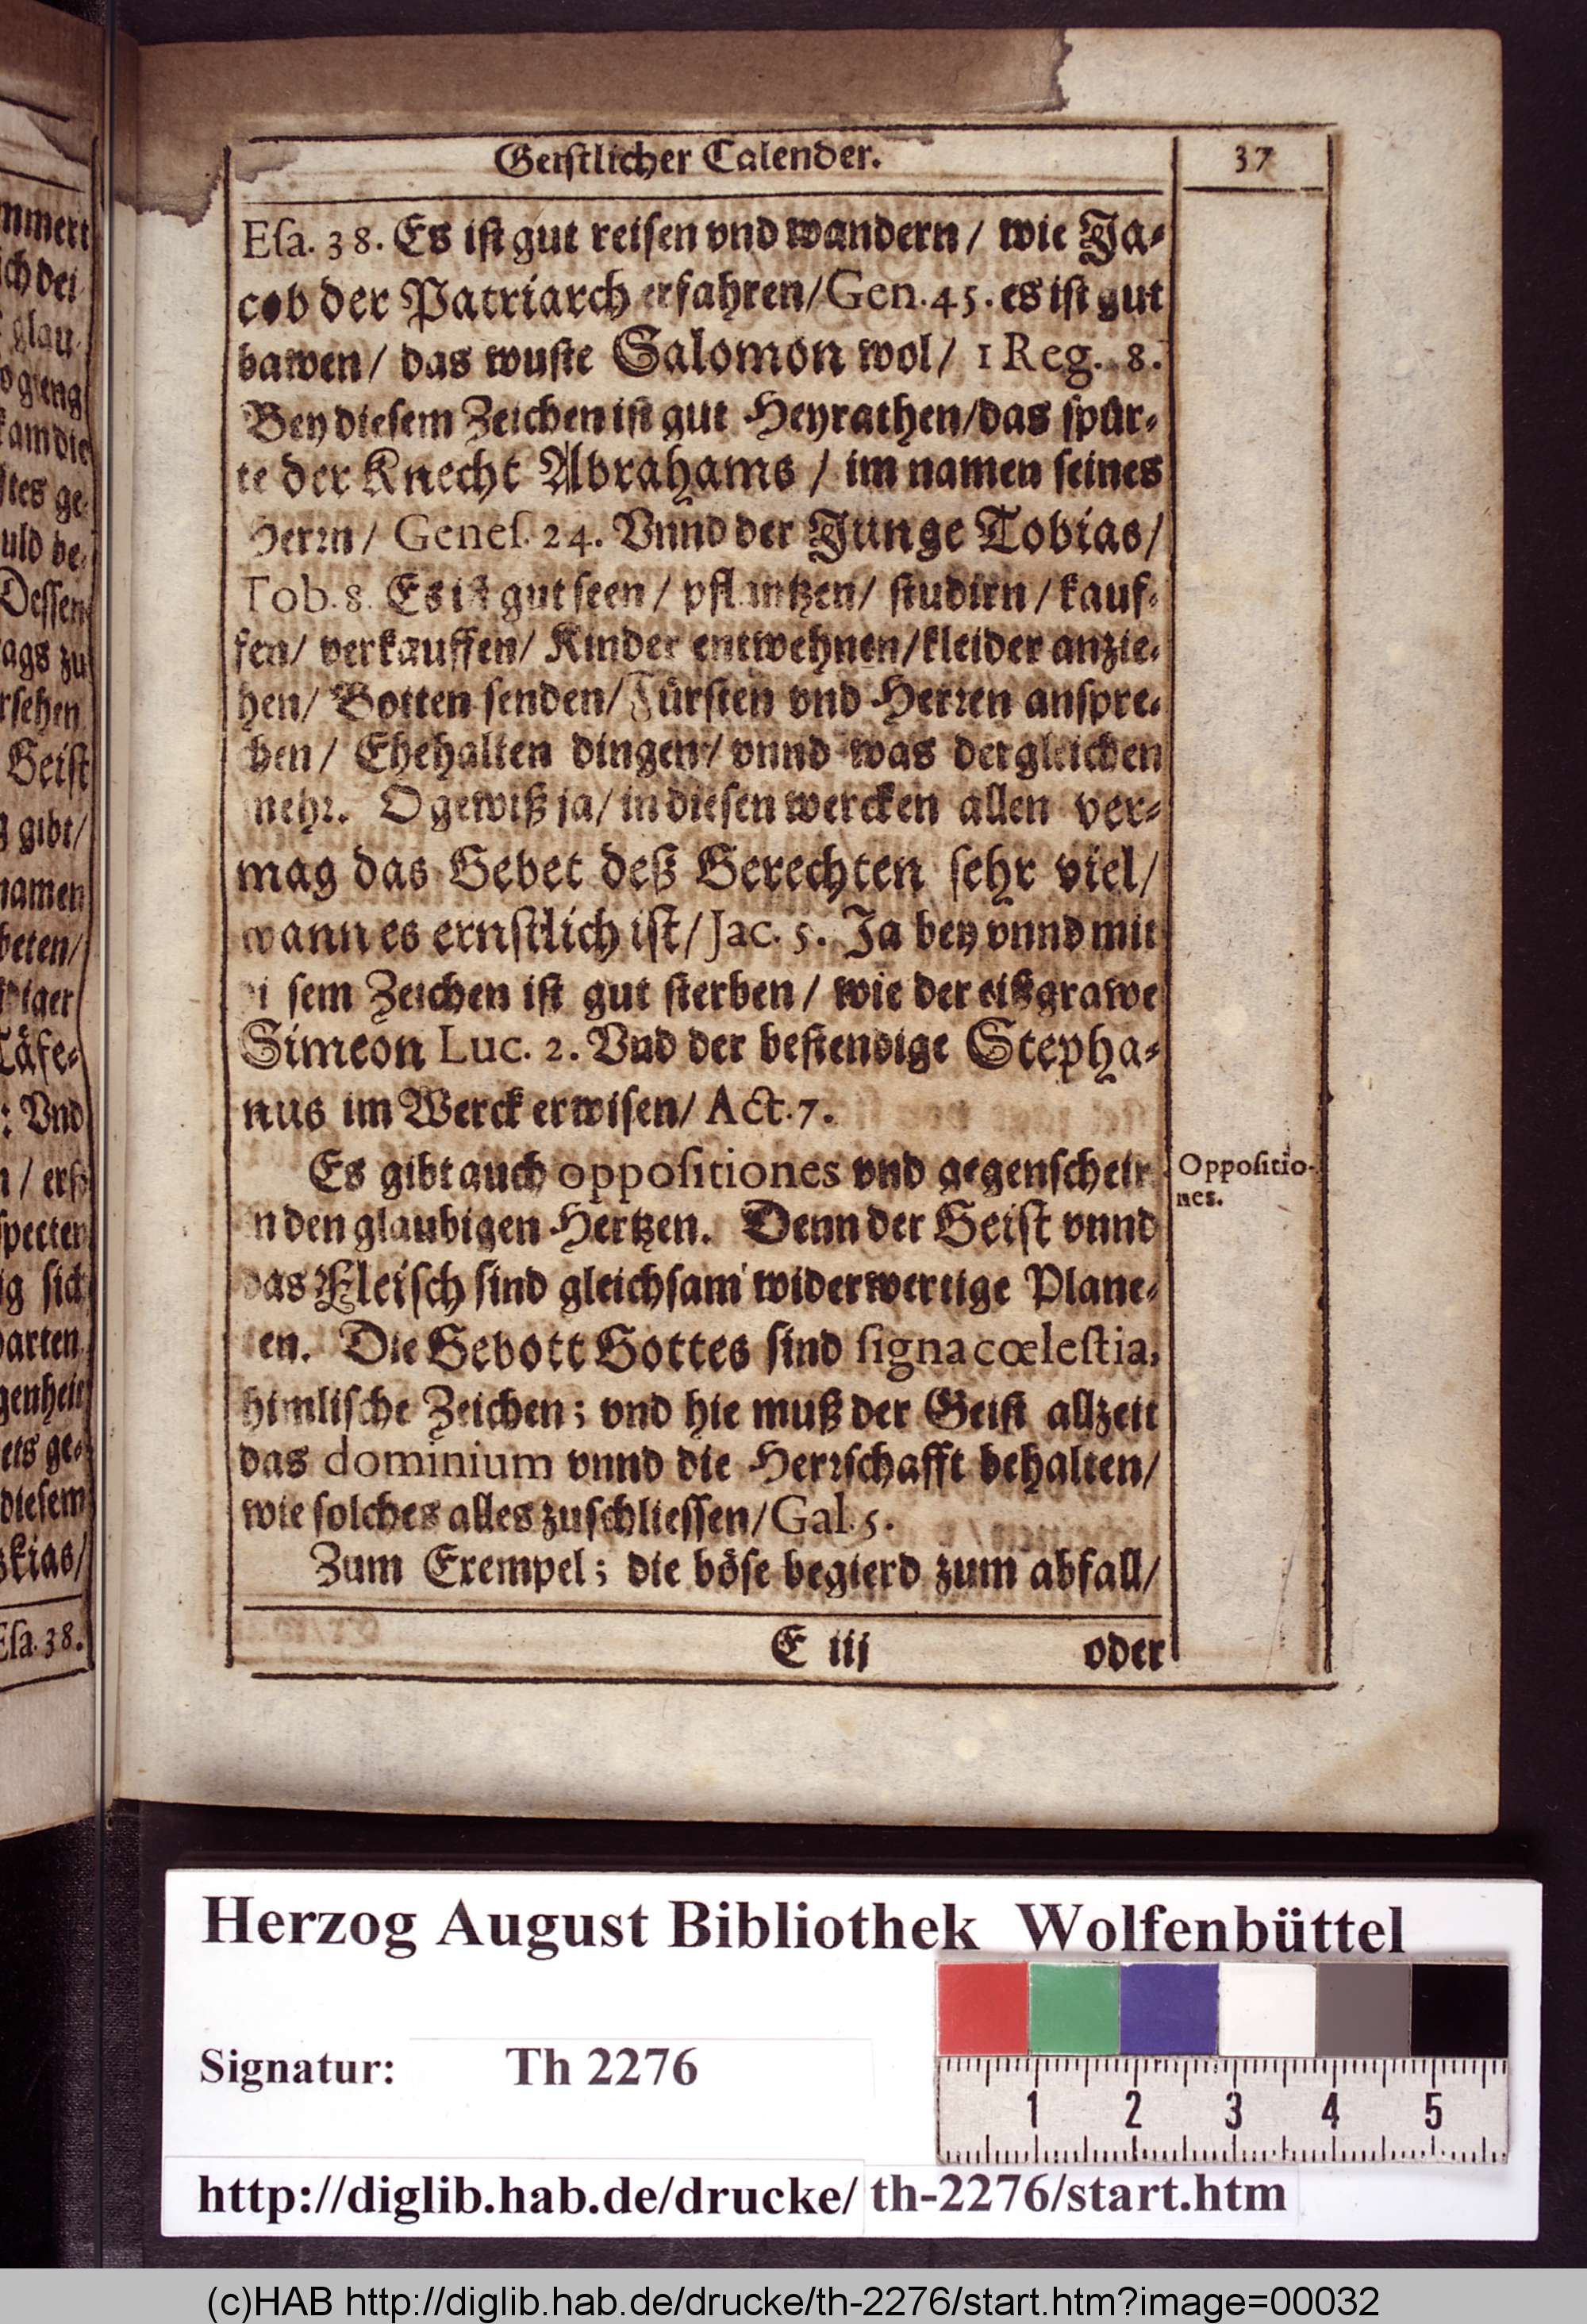 Geistlicher Calender.
37
Esa. 38. Es ist gut reisen vnd wandern / wie Ja-
cob der Patriarch erfahren / Gen. 45. es ist gut
bawen / das wuste Salomon wol / 1 Reg. 8.
Bey diesem Zeichen ist gut Heyrathen / das spür-
te der Knecht Abrahams / im namen seines
Herrn / Genes. 24. Vnnd der Junge Tobias /
Tob. 8. Es ist gut seen / pflantzen / studirn / kauf-
fen / verkauffen / Kinder entwehnen / kleider anzie-
hen / Botten senden / Fürsten vnd Herren anspre-
hen / Ehehalten dingen / vnnd was dergleichen
mehr. O gewiß ja / in diesen wercken allen ver-
mag das Gebet deß Gerechten sehr viel /
wann es ernstlich ist / Jac. 5. Ja bey vnnd mit
disem Zeichen ist gut sterben / wie der eißgrawe
Simeon Luc. 2. Vnd der bestendige Stepha-
nus im Werck erwisen / Act. 7.
Es gibt auch oppositiones vnd gegenschein
in den glaubigen Hertzen. Denn der Geist vnnd
das Fleisch sind gleichsam widerwertige Plane-
ten. Die Gebott Gottes sind signa cœlestia,
himlische Zeichen; vnd hie muß der Geist allzeit
das dominium vnnd die Herrschafft behalten /
wie solches alles zuschliessen / Gal. 5.
Zum Exempel; die böse begierd zum abfall /
Oppositio-
nes.
E iij
oder
mmert
ich dei
glau-
gieng
kam die
stes ge-
uld be-
Dessen
ags zu
rsehen
Geist
gibt /
namen
beten /
diger
Täfe-
: Vnd
n / erst
specten
ig sich
arten
genheit
ets ge-
diesem
skias /
Esa. 38.
Herzog August Bibliothek Wolfenbüttel
Signatur: Th 2276
1 2 3 4 5
http://diglib.hab.de/drucke/ th-2276/start.htm
(c)HAB http://diglib.hab.de/drucke/th-2276/start.htm?image=00032